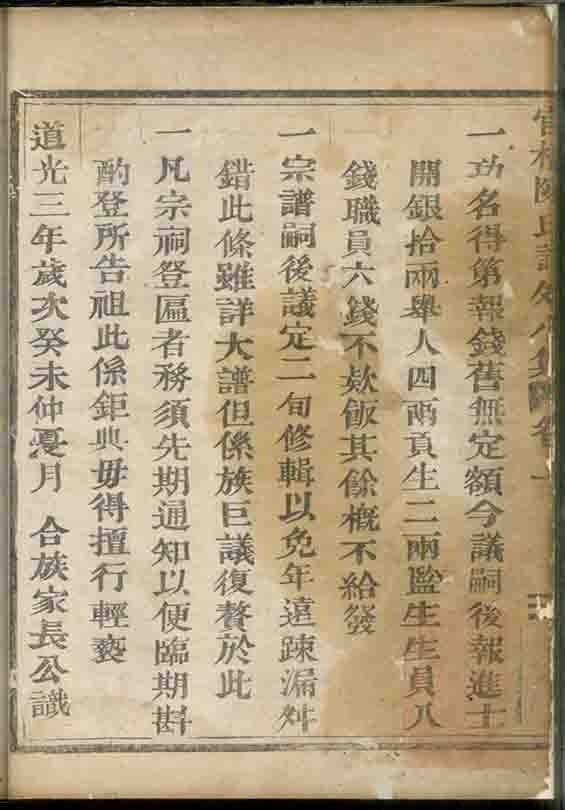 陳氏譜
一功名得第報錢舊無定額今議嗣後報進士
開銀拾兩舉人四兩貢生二兩監生生員八
錢職員六錢不欵飯其餘概不給發
一宗譜嗣後議定二旬修輯以免年遠疎漏舛
錯此條雖詳大譜但係族巨議復贅於此
一凡宗祠登匾者務須先期通知以便臨期斟
酌登所告祖此係鉅典毋得擅行輕褻
道光三年歲次癸未仲夏月 合族家長公識